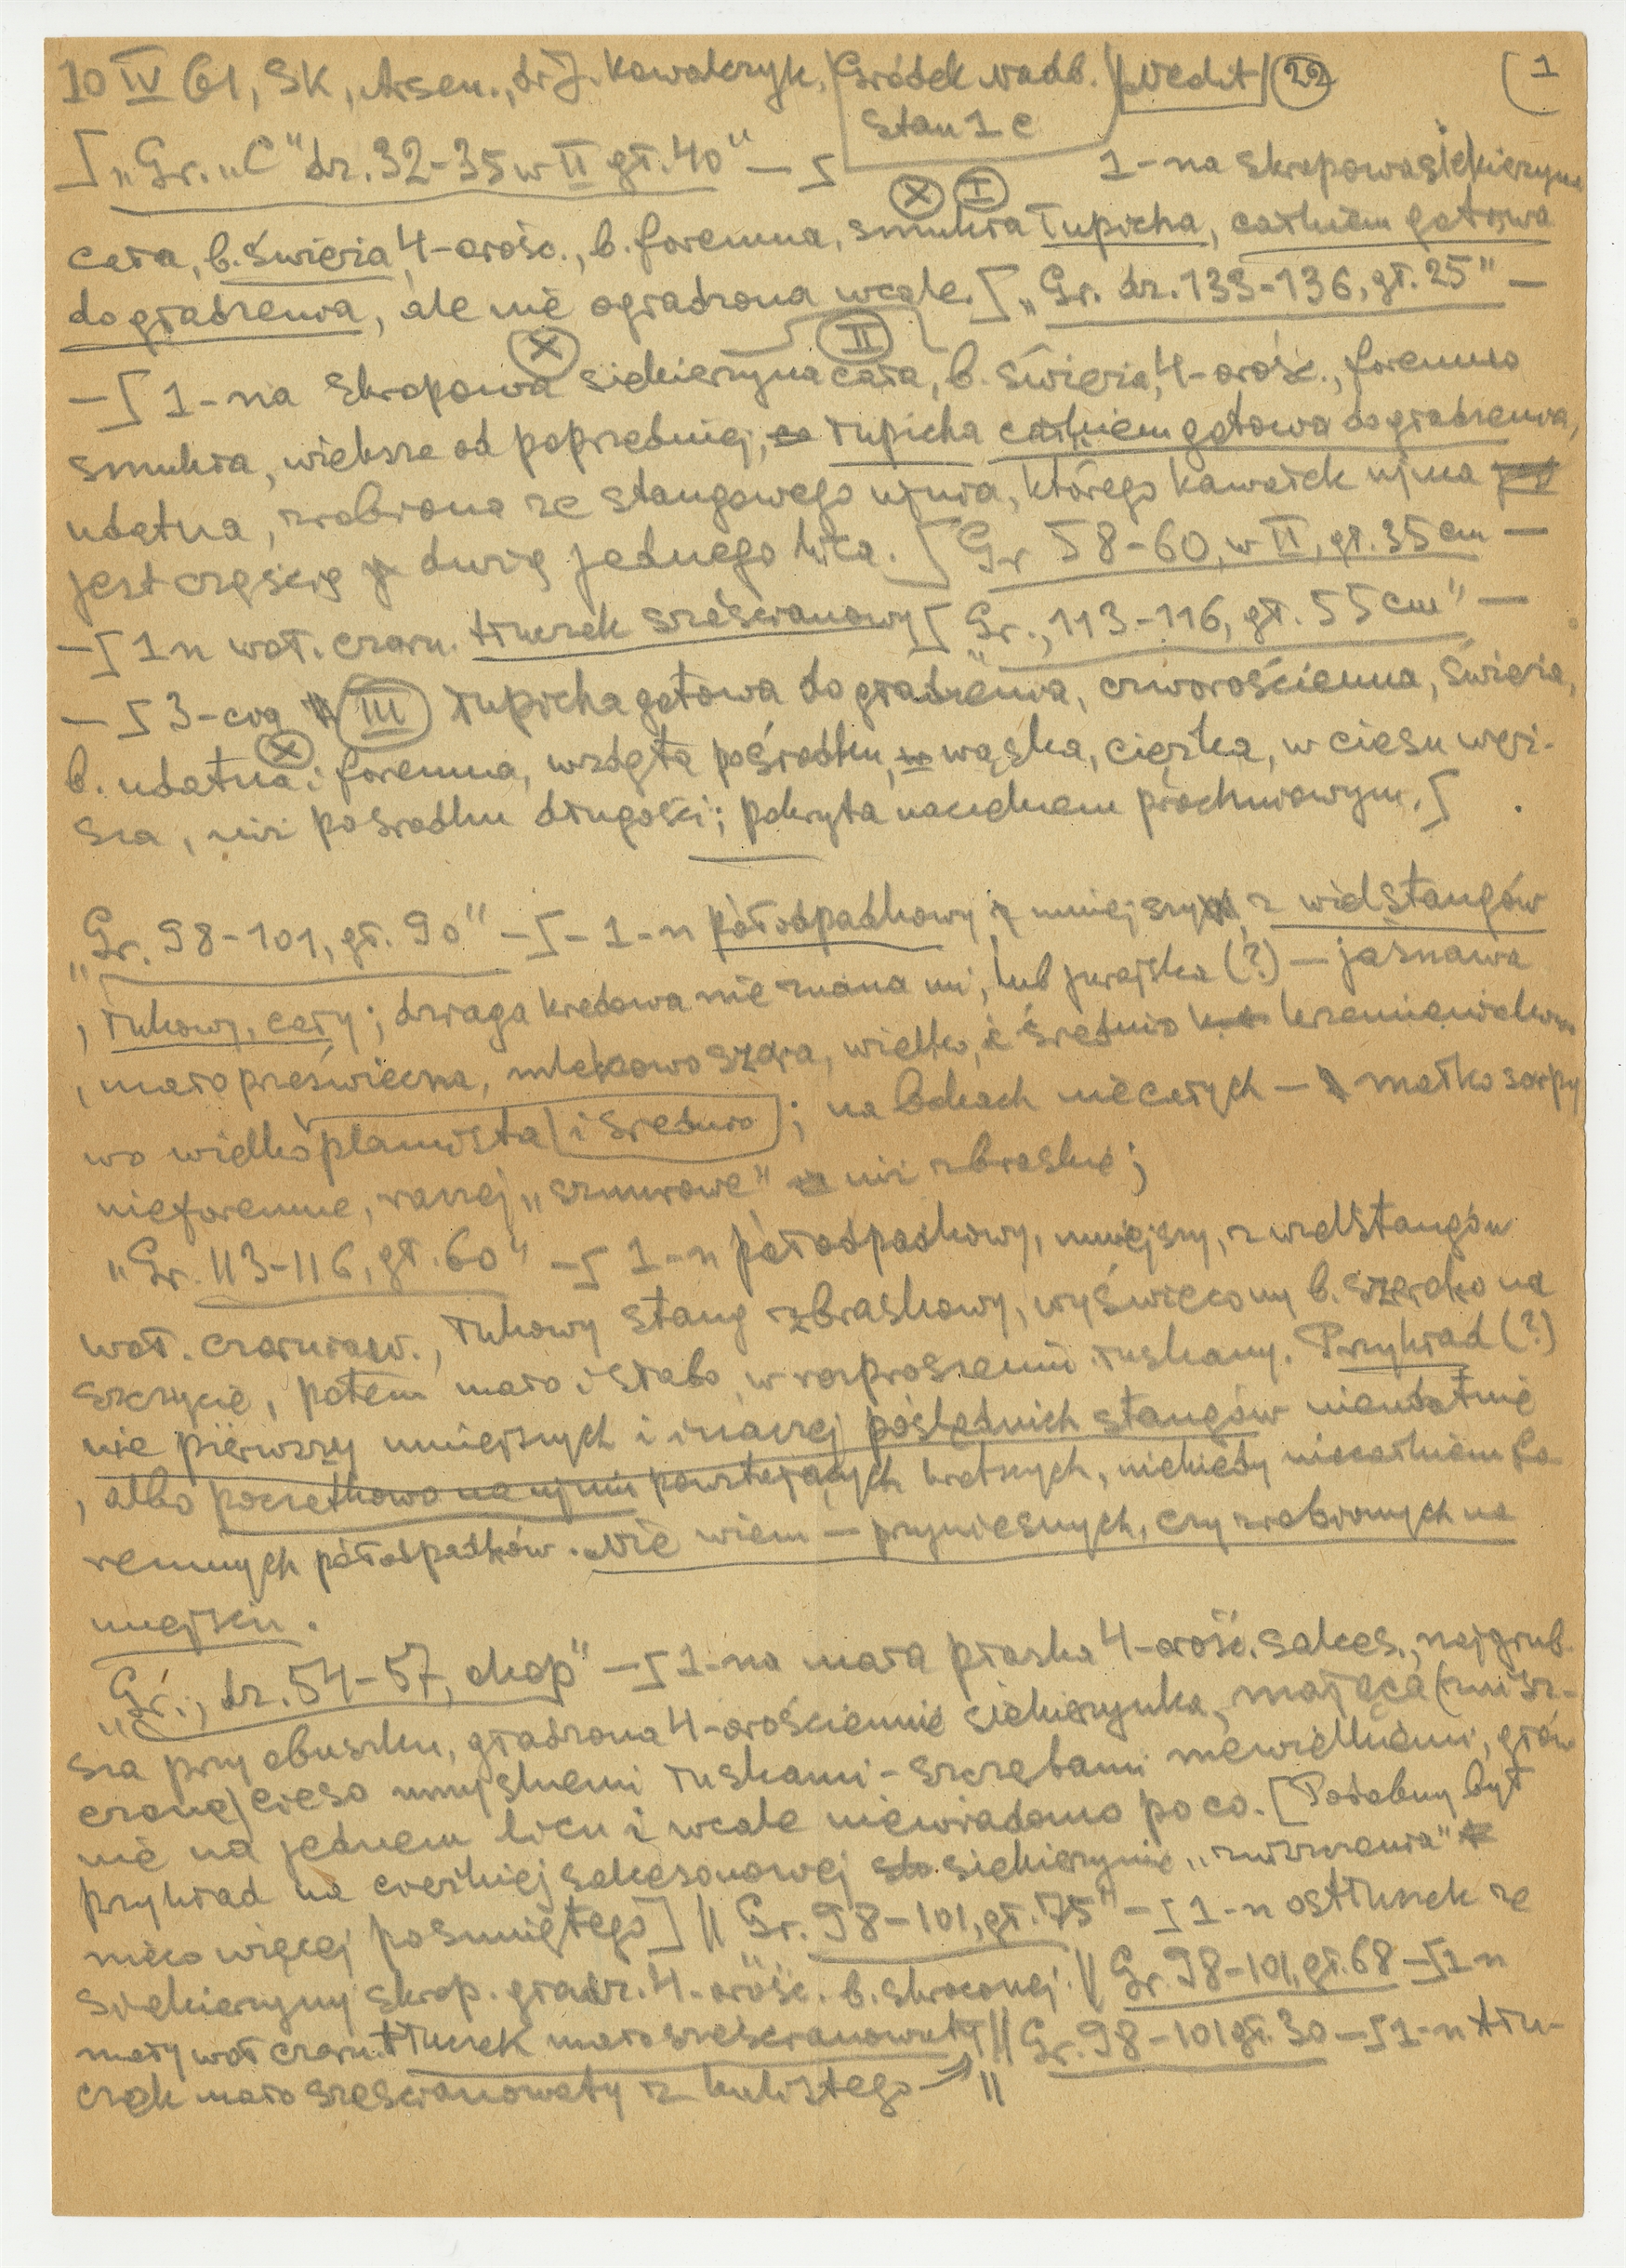 10 IV 61, SK, Arsen., dr J. Kowalczyk, Gródek Nadb. Nedit 22 1
Stan 1 c
„Gr. „C" dz. 32-35 w II gł. 40" — 1-na skrapowa siekieryna
X I
cała, b. świeża, 4-arośc., b. foremna, smukła łupicha, całkiem gotowa
do gładzenia, ale nie ogładzona wcale. [„Gr. dz. 133-136, gł. 25" —
X II
— 1-na skrapowa siekieryna cała, b. świeża, 4-arośc., foremna
smukła, większa od poprzedniej, łupicha całkiem gotowa do gładzenia,
udatna, zrobiona ze stangowego ujnia, którego kawałek ujma
jest częścią dużą jednego lica. [Gr 58-60, w II, gł. 35 cm —
— 1 n woł. czarn. tłuczek sześcianowy [„Gr., 113-116, gł. 55 cm" —
— 3-cia III łupicha gotowa do gładzenia, czworościenna, świeża,
X
b. udatna i foremna, wzdęta pośrodku, wąska, ciężka, w ciesu węż-
sza, niż pośrodku długości; pokryta naciekiem próchnicowym.
„Gr. 98-101, gł. 90" — 1-n półodpadkowy mniejszy z wielstangów
, łukowy, cały; dziaga kredowa nie znana mi, lub jurajska (?) — jasnawa
, mało prześwieczna, mlekowo szara, wielko, i średnio krzemieniakwa
wo wielko plamista i średnio; na bokach niecałych —
nieforemne, raczej „sznurowe" niż zbraskie;
„Gr. 113-116, gł. 60" — 1-n półodpadkowy, mniejszy, z wielstangów
woł. czarniaw., łukowy stang zbraskowy, wyświecony b. szeroko na
szczycie, potem mało i słabo, w rozproszeniu łuskany. Przykład (?)
nie pierwszy mniejszych i inaczej pośledních stangów nieudatnie
, albo początkowo na ujnii powstających krótszych, niekiedy niecałkiem fo-
remnych półodpadków. Nie wiem — przyniesnych, czy zrobionych na
miejscu.
„Gr., dz. 54-57, okop" — 1-na mała płaska 4-arośc. sakes., najgrub-
sza przy obuszku, gładzona 4-arościennie siekierynka, mająca (zniszc-
czone) cieso umyślnemi łuskami-szczębami niewielkiemi, głów-
nie na jednem licu i wcale niewiadomo po co. [Podobny był
przykład na cieżkiej sakesonowej siekierynie „zniszczenia"
nieco więcej posuniętego] || Gr. 98-101, gł. 75" — 1-n ostłuczek ze
siekieryny skrap. gładz. 4-arośc. b. skroconej. || Gr. 98-101, gł. 68 — 1 n
mały woł czarn. tłuczek małosześcianowaty || Gr. 98-101 gł. 30 — 1-n tłu-
czek mało sześcianowaty z kulistego ||